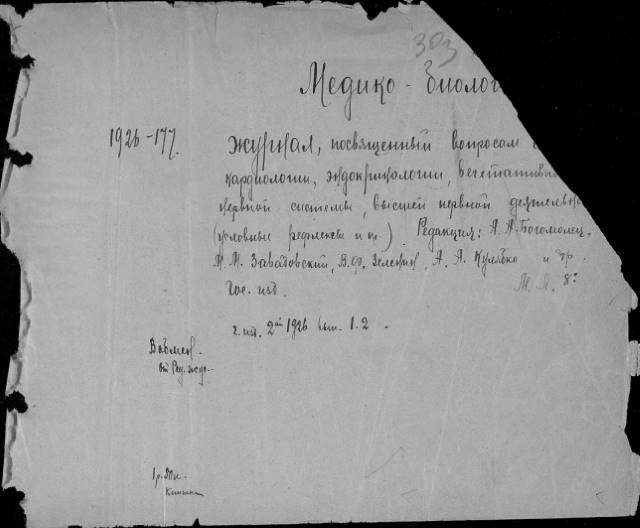 303
Медико - биолог
1926-177. Журнал, посвященный вопросам
кардиологии, эндокринологии, вегетативн
нервной системы, высшей нервной деятельн
(условные рефлексы и пр.). Редакция: А. А. Богомолец,
М. М. Завадовский, В. Ф. Зеленин, А. А. Кулябко и др.
М. Л. 8°
Гос. изд.
г. изд. 2ой 1926 вып. 1. 2.